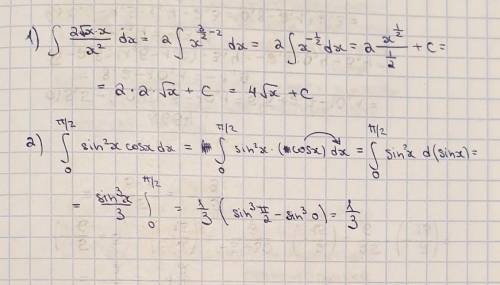 1) ∫ 2√x·x / x² dx = 2 ∫ x^(3/2 - 2) dx = 2 ∫ x^(-1/2) dx = 2 x^(1/2) / (1/2) + C =
= 2·2·√x + C = 4√x + C
2) ∫₀^(π/2) sin²x cosx dx = ∫₀^(π/2) sin²x · (cosx) dx = ∫₀^(π/2) sin²x d(sinx) =
= sin³x / 3 |₀^(π/2) = 1/3 (sin³ π/2 - sin³ 0) = 1/3